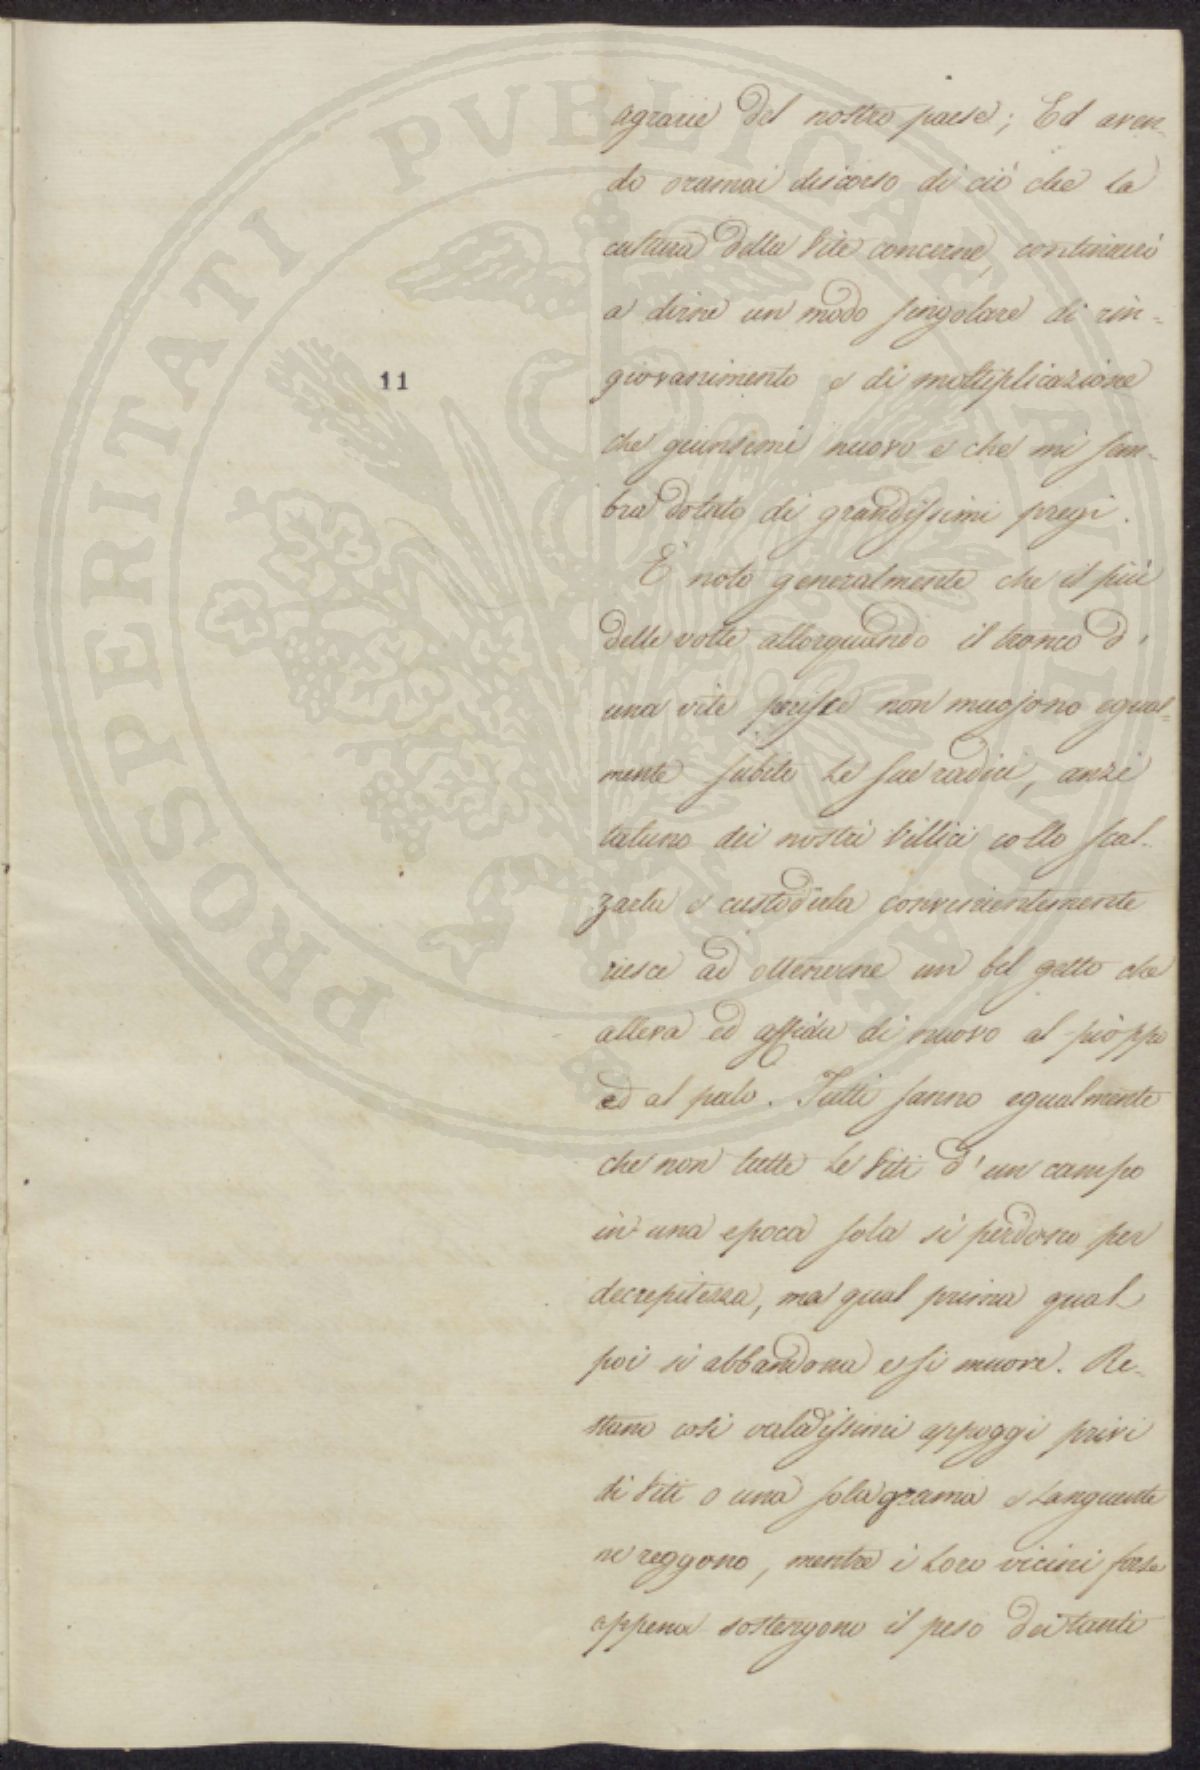 PROSPERITATI PVBLICAE AVGENDAE
11
agrarie del nostro paese; Ed aven-
do oramai discorso di ciò che la
cultura della Vite concerne, continuerò
a dirne un modo singolare di rin-
giovanimento e di moltiplicazione
che giunsemi nuovo e che mi sem-
bra dotato di grandissimi pregi.
È noto generalmente che il più
delle volte allorquando il tronco d'
una vite perisce non muojono egual-
mente subito le sue radici, anzi
taluno dei nostri Villici collo scal-
zarla e custodirla convenientemente
riesce ad ottenerne un bel getto che
alleva ed affida di nuovo al pioppo
ed al palo. Tutti sanno egualmente
che non tutte le Viti d'un campo
in una epoca sola si perdono per
decrepitezza, ma qual prima qual
poi si abbandona e si muore. Re-
stano così validissimi appoggi privi
di Viti o una sola grama e languente
ne reggono, mentre i loro vicini forse
appena sostengono il peso dei tanti